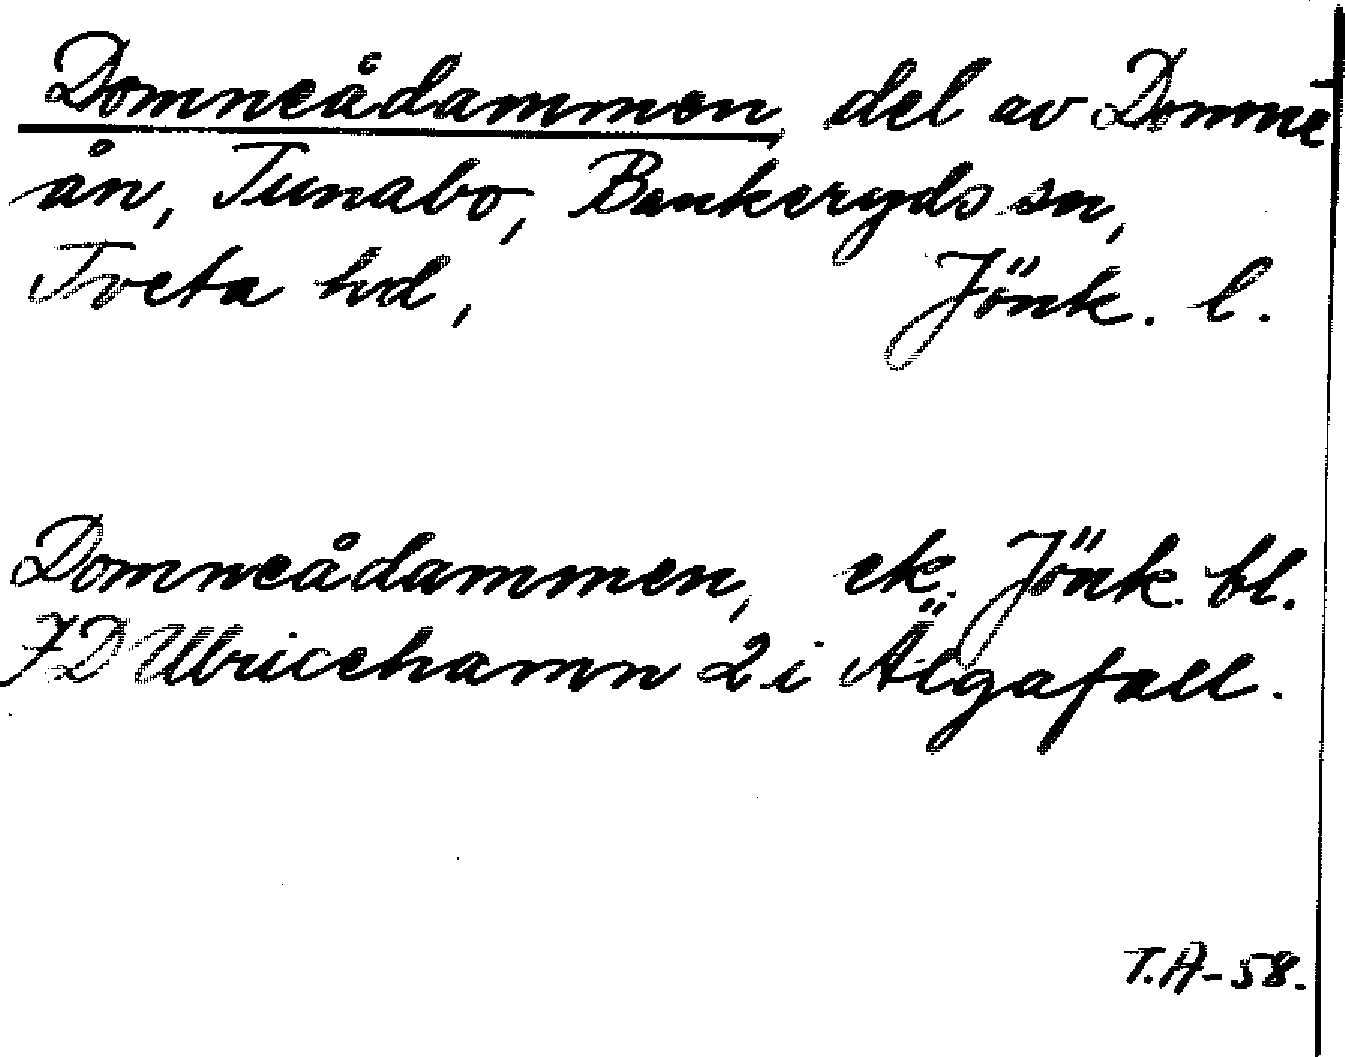 Domneådammen, del av Domne
ån, Tunabo, Bankeryds sn,
Tveta hd, Jönk. l.
Domneådammen, ek. Jönk. bl.
7D Ulricehamn 2i Älgafall.
T.A-58.